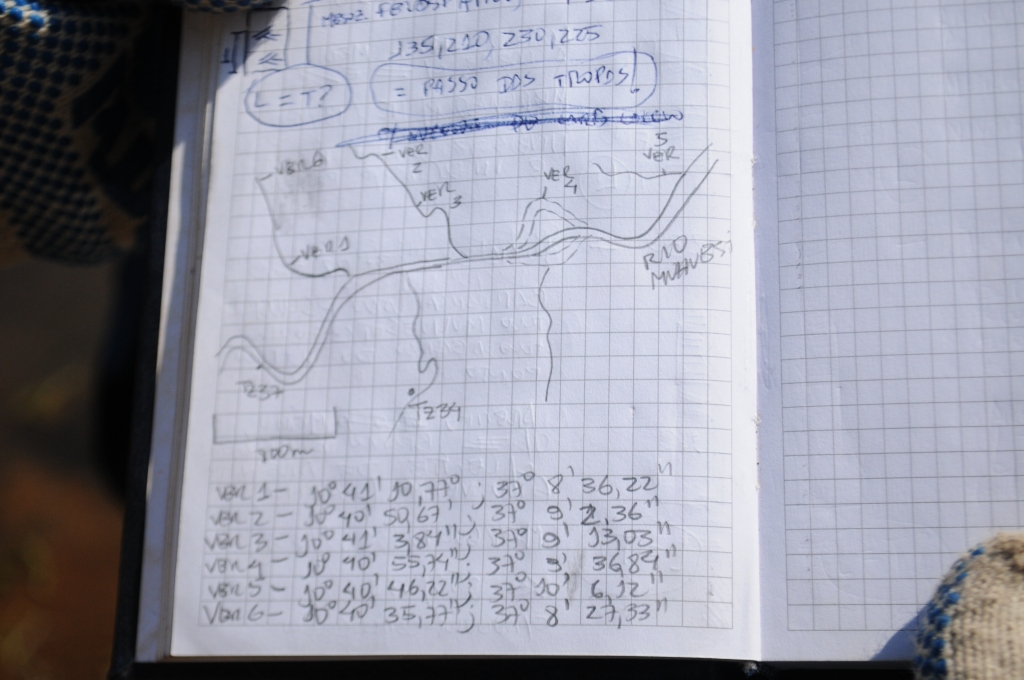 135, 210, 230, 225
L = T?
= PASSO DOS TROPOS!
VER 6
VER 2
VER 3
VER 4
5
VER
VER 1
RIO
T237
T234
100m
VER 1 - 10° 41' 10,77" ; 37° 8' 36,22"
VER 2 - 10° 40' 50,67' ; 37° 9' 2,36"
VER 3 - 10° 41' 3,84" ; 37° 9' 13,03"
VER 4 - 10° 40' 55,74" ; 37° 9' 36,84"
VER 5 - 10° 40' 46,22" ; 37° 10' 6,12"
VER 6 - 10° 40' 35,77" ; 37° 8' 27,33"